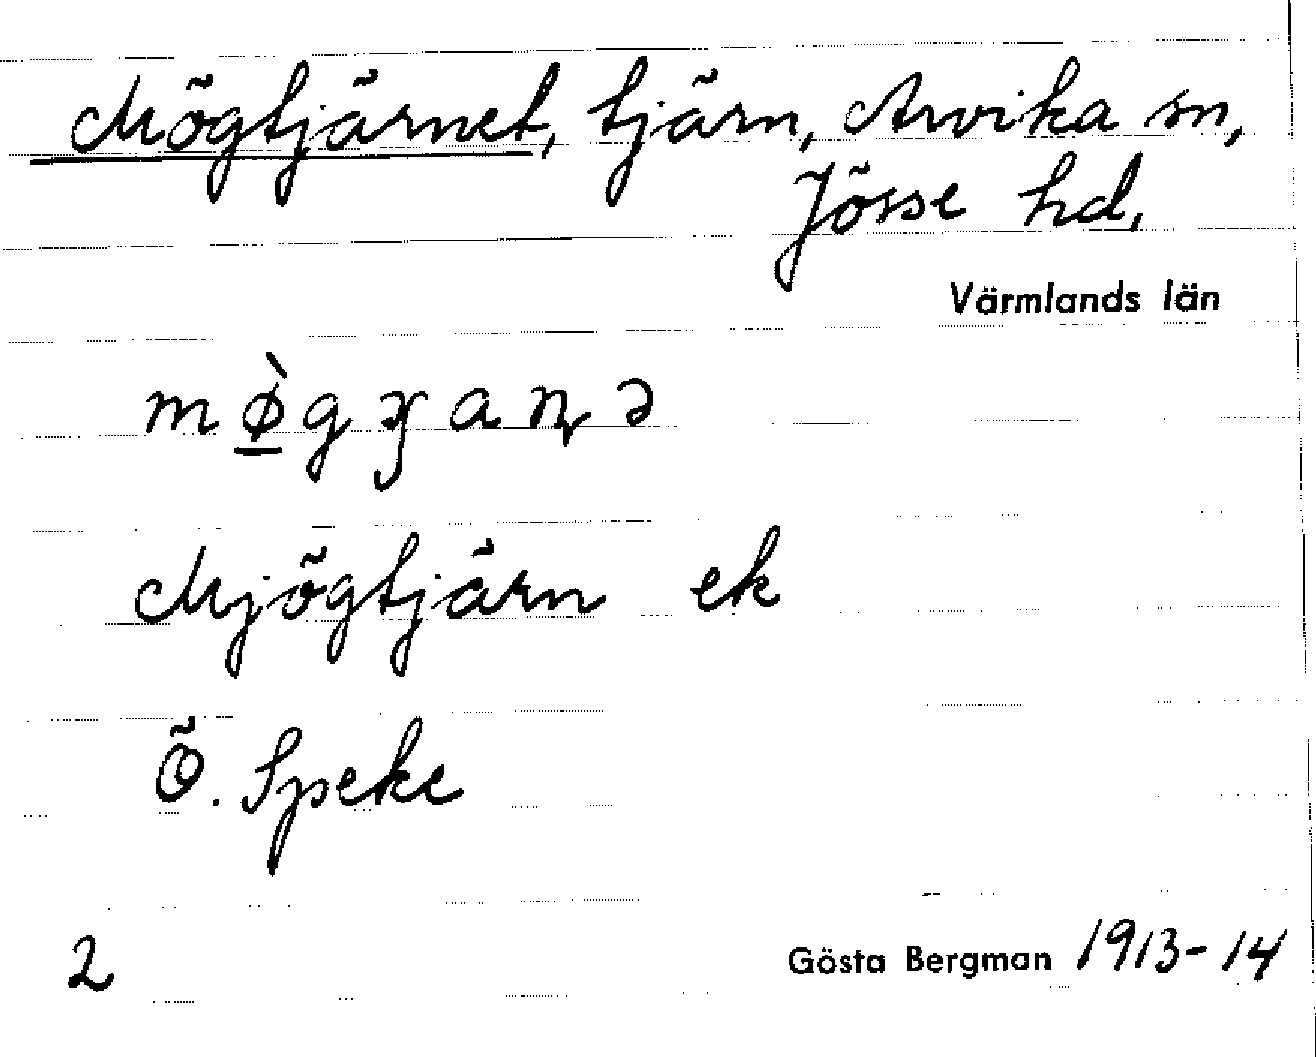 Mögtjärnet, tjärn, Arvika sn,
Jösse hd,
Värmlands län
Mjögtjärn ek
Ö. Speke
2
Gösta Bergman 1913-14